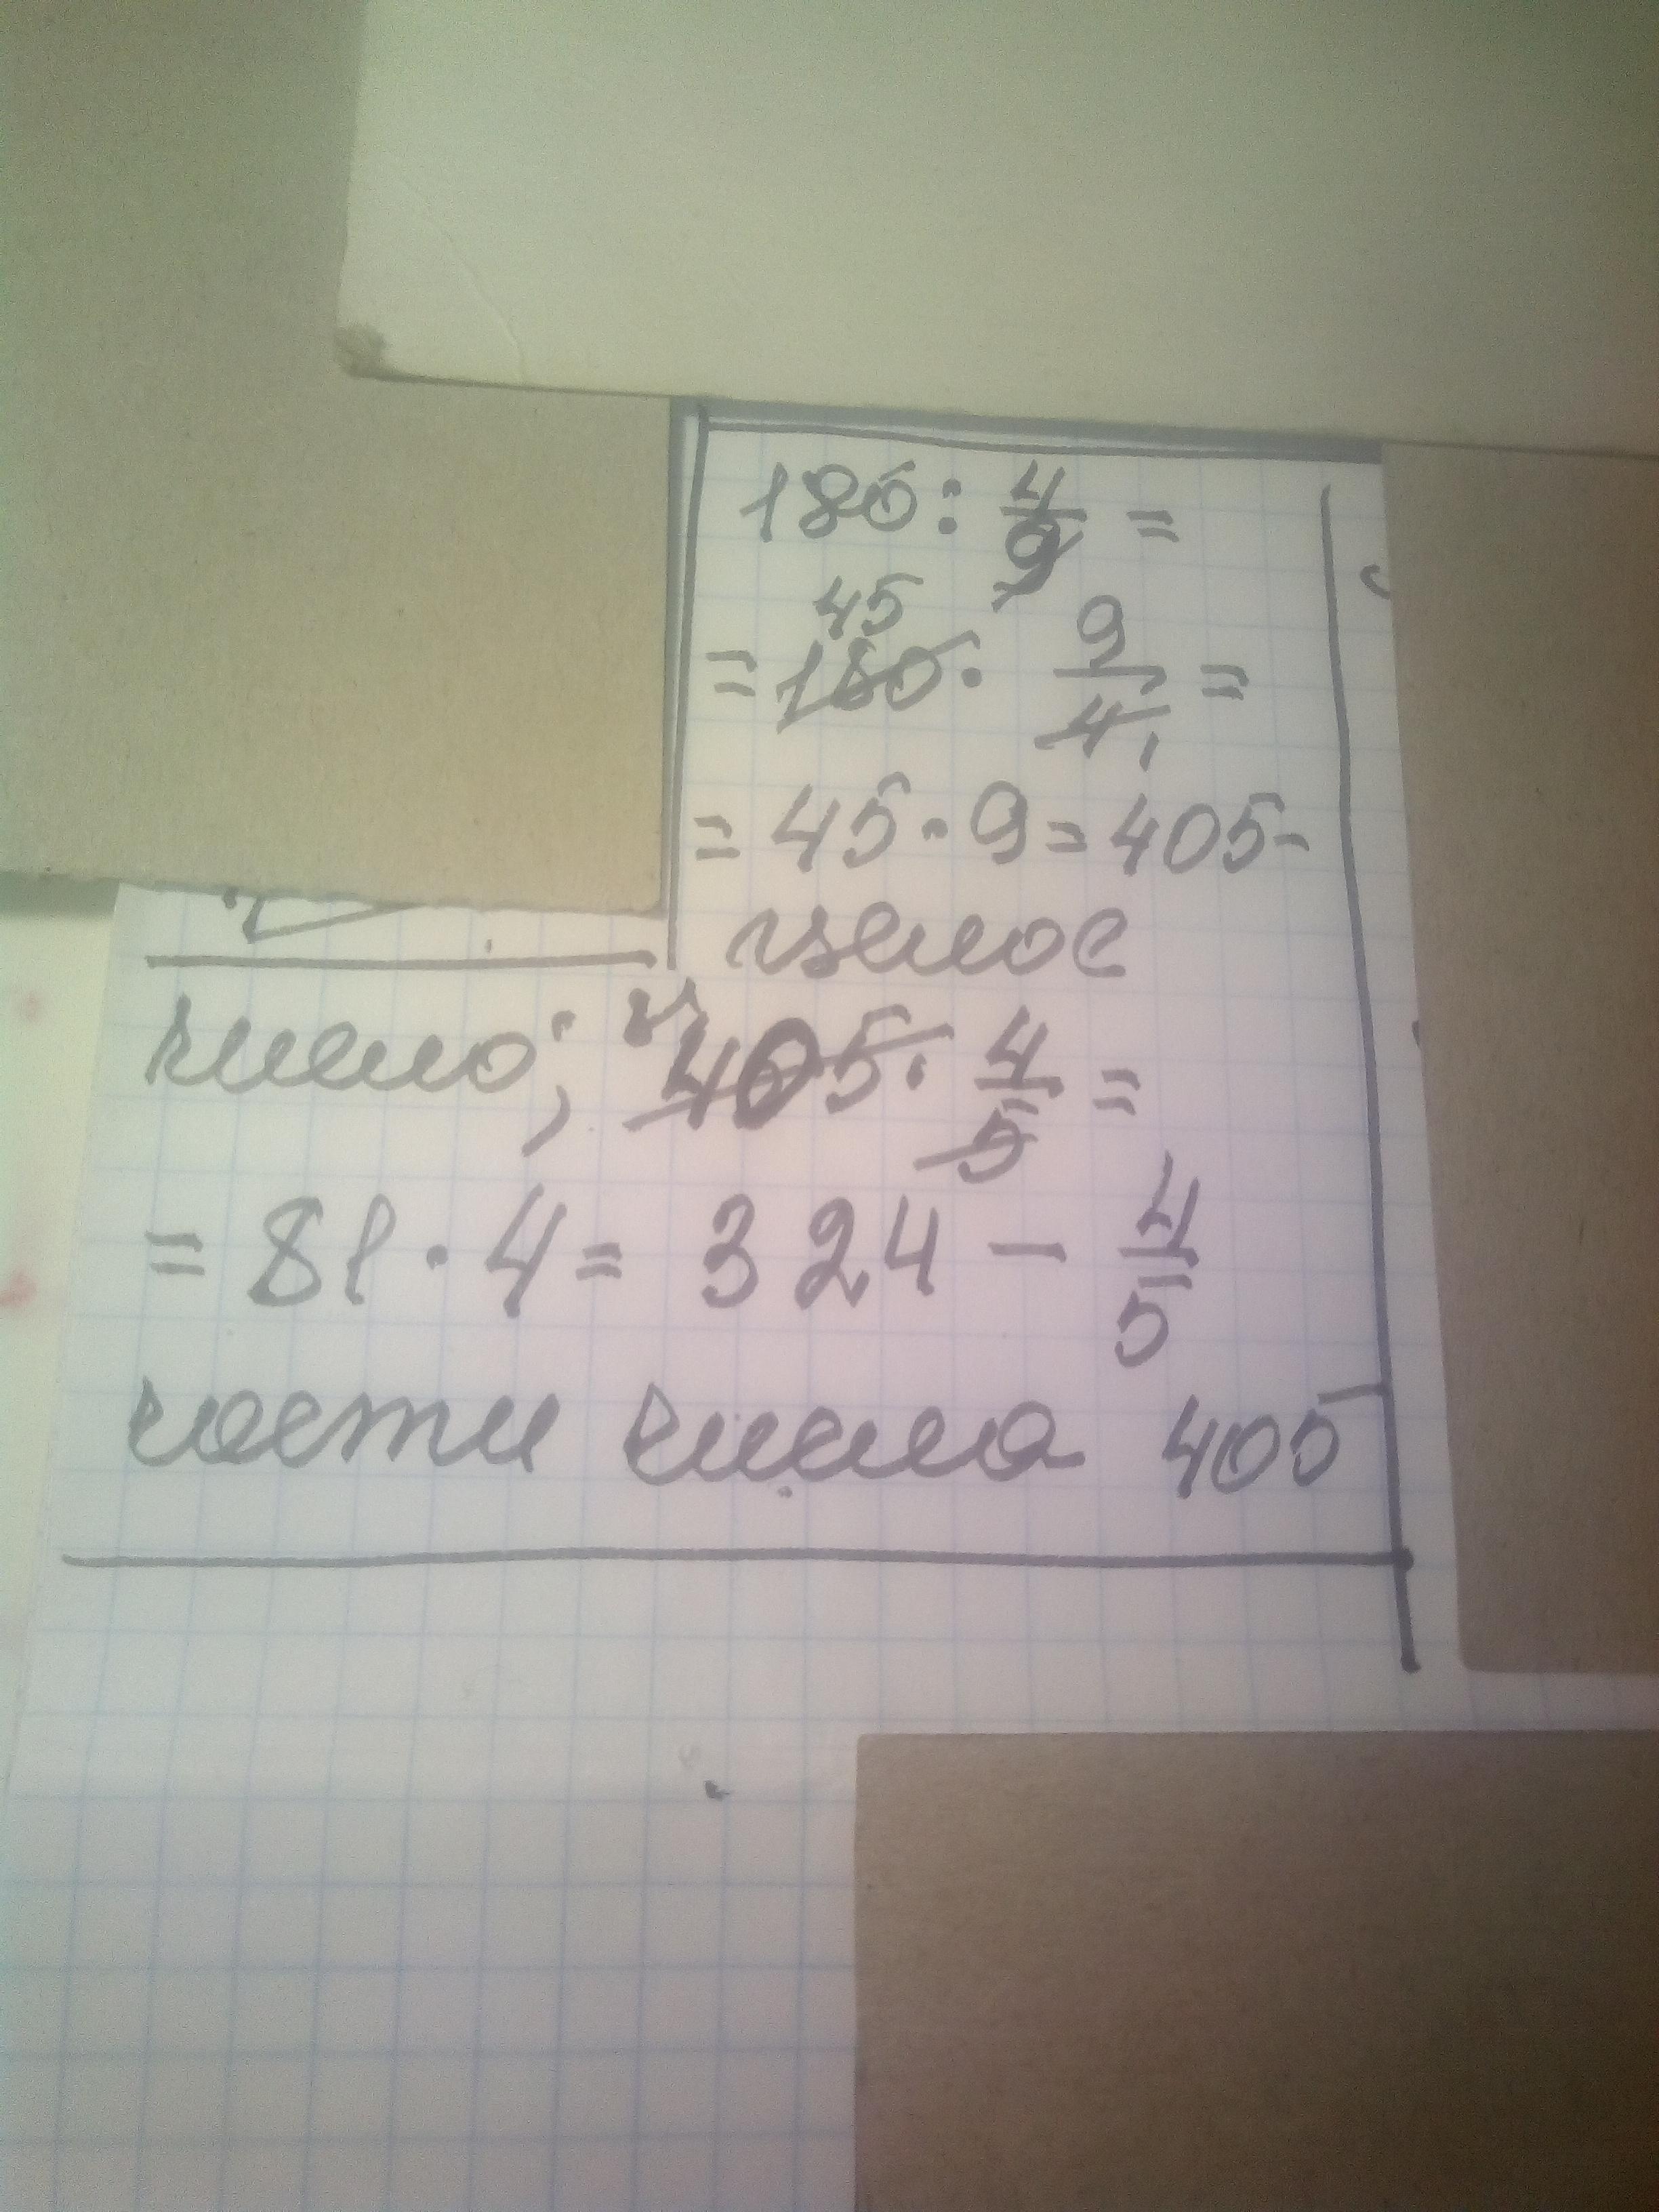 180 : 4/9 =
45
= 180 · 9/4 1 =
= 45 · 9 = 405 -
целое
число; 405 · 4/5 =
= 81 · 4 = 324 - 4/5
части числа 405